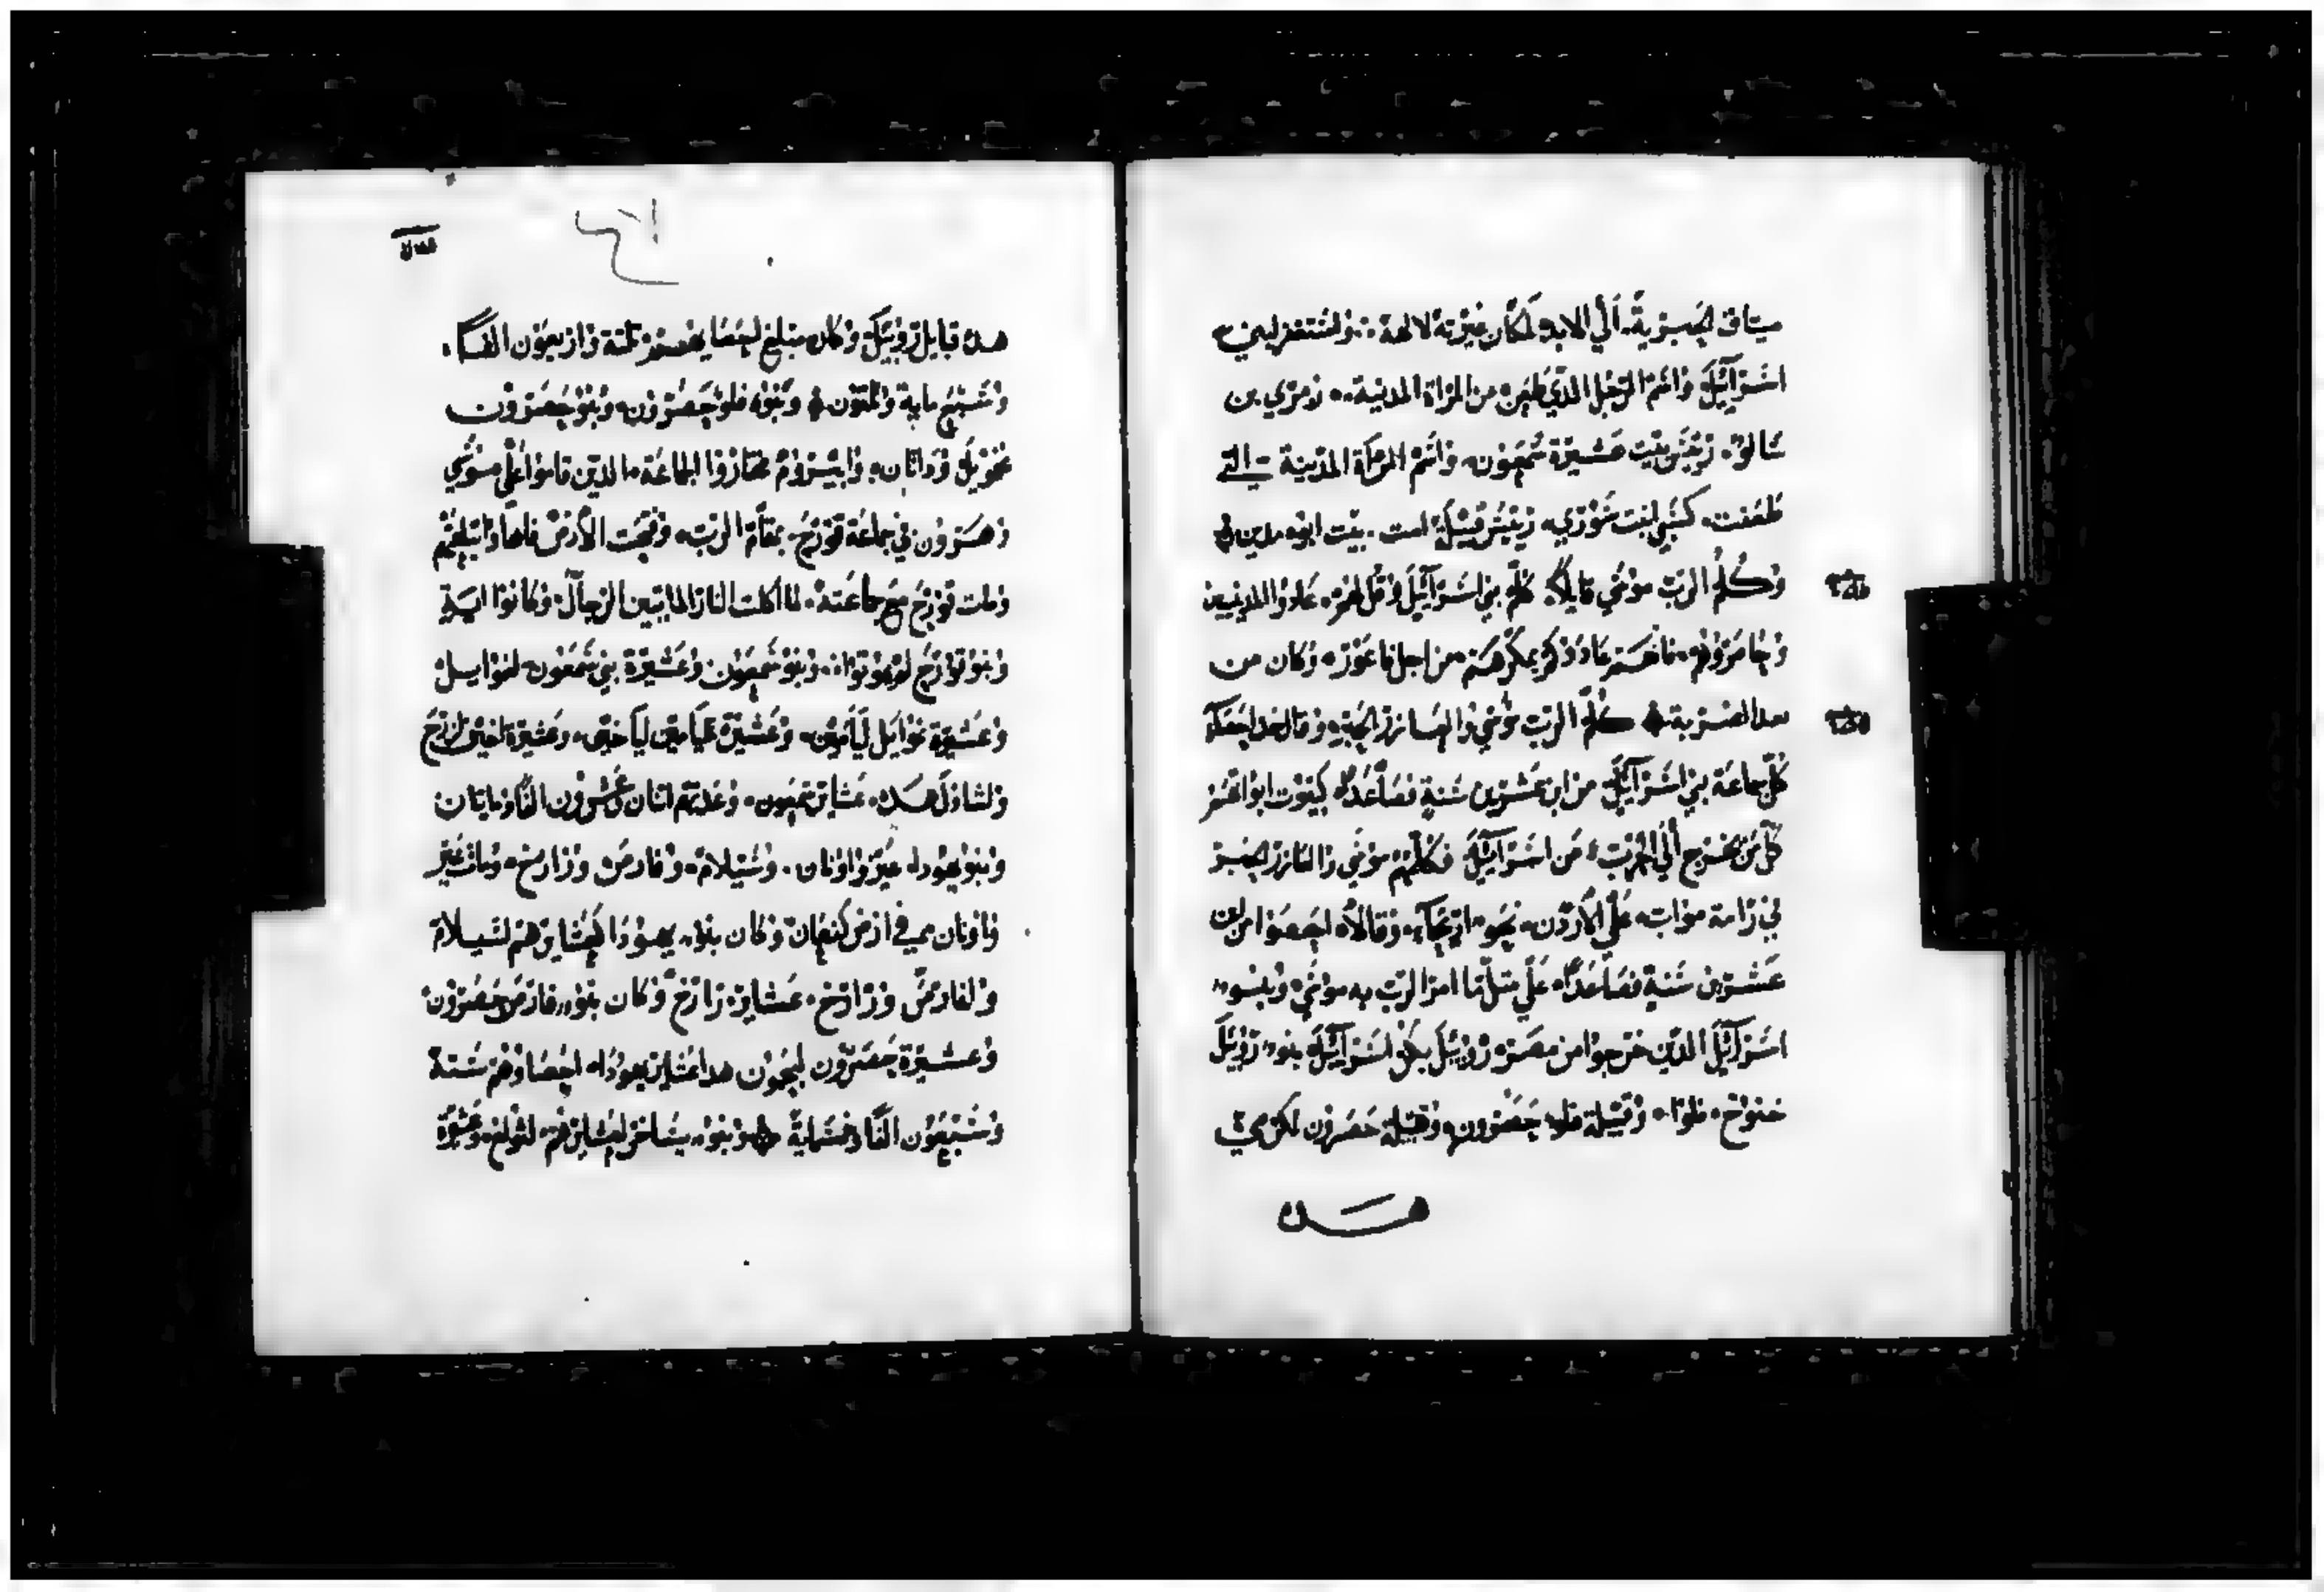 ميتاق الحبرية الي الابد لمكان غيرته لالاهة وليستغفر لبني
اسرآئيل واسم الرجل الذي طعن من المراة المدنية زمري بن
سالو رئيس بيت عشيرة شمعون واسم المرآة المدينية التي
طعنت كسبي ابنت سوري رئيس قبيلة امت بيت ابوه مدين
وكلم الرب موسي قايلاً كلم بني اسرآئيل وقل لهم عادوا المدنيين
وحاصروهم فانهم عادوكم بمكرهم من اجل فاعور وكان من
بعد الضربة كلم الرب موسي والعازر الحبر وقال خدا جملة
كل جماعة بني اسرآئيل من ابن عشرين سنة فصاعدا كبيوت ابواتهم
كل من يخرج الي الحرب من اسرآئيل فكلمهم موسي والعازر الحبر
في رامة مواب علي الاردن نحو اريحآ وقالا احصوا من ابن
عشرين سنة فصاعدا علي مثل ما امر الرب به موسي وبنو
اسرآئيل الدين خرجوا من مصر روبيل بكر اسرآئيل بنو روبيل
خنوخ فلوا وقبيلة فلوا حصرون وقبيلة حصرون لكرمي
هده
هده قبايل روبيل وكان مبلغ احصايهم تلتة واربعون الفاً
وسبع ماية وتلتون وبنو فلو حصرون وبنو حصرون
نمويل وداتان وابيروم هماروا الجماعة الدين قاموا علي موسي
وهرون في جماعة قورح بمقام الرب وفتحت الارض فاها وابتلعتهم
ومات قورح مع جماعته لما اكلت النار المايتين الرجال وكانوا اية
وبنو قورح لم يموتوا وبنو شمعون وعشيرة بني شمعون لنموايل
وعشيرة نموايل ليامين وعشيرة يامين ليآخين وعشيرة لخين لزارح
ولشاول هده عشاير شمعون وعدتهم اتنان وعشرون الفًا ومايتان
وبنو يهودا عير واونان وشيلام وفارص وزارح ومات عير
واونان في ارض كنعان وكان بنو يهودا كعشايرهم لشيلام
ولفارص وزارح عشاير زارح وكان بنو فارص حصرون
وعشيرة حصرون ليحمون هدا عشاير يهودا احصاوهم ستة
وسبعون الفًا وخمسماية وبنو يساخر لعشايرهم لتولع وعشيرة